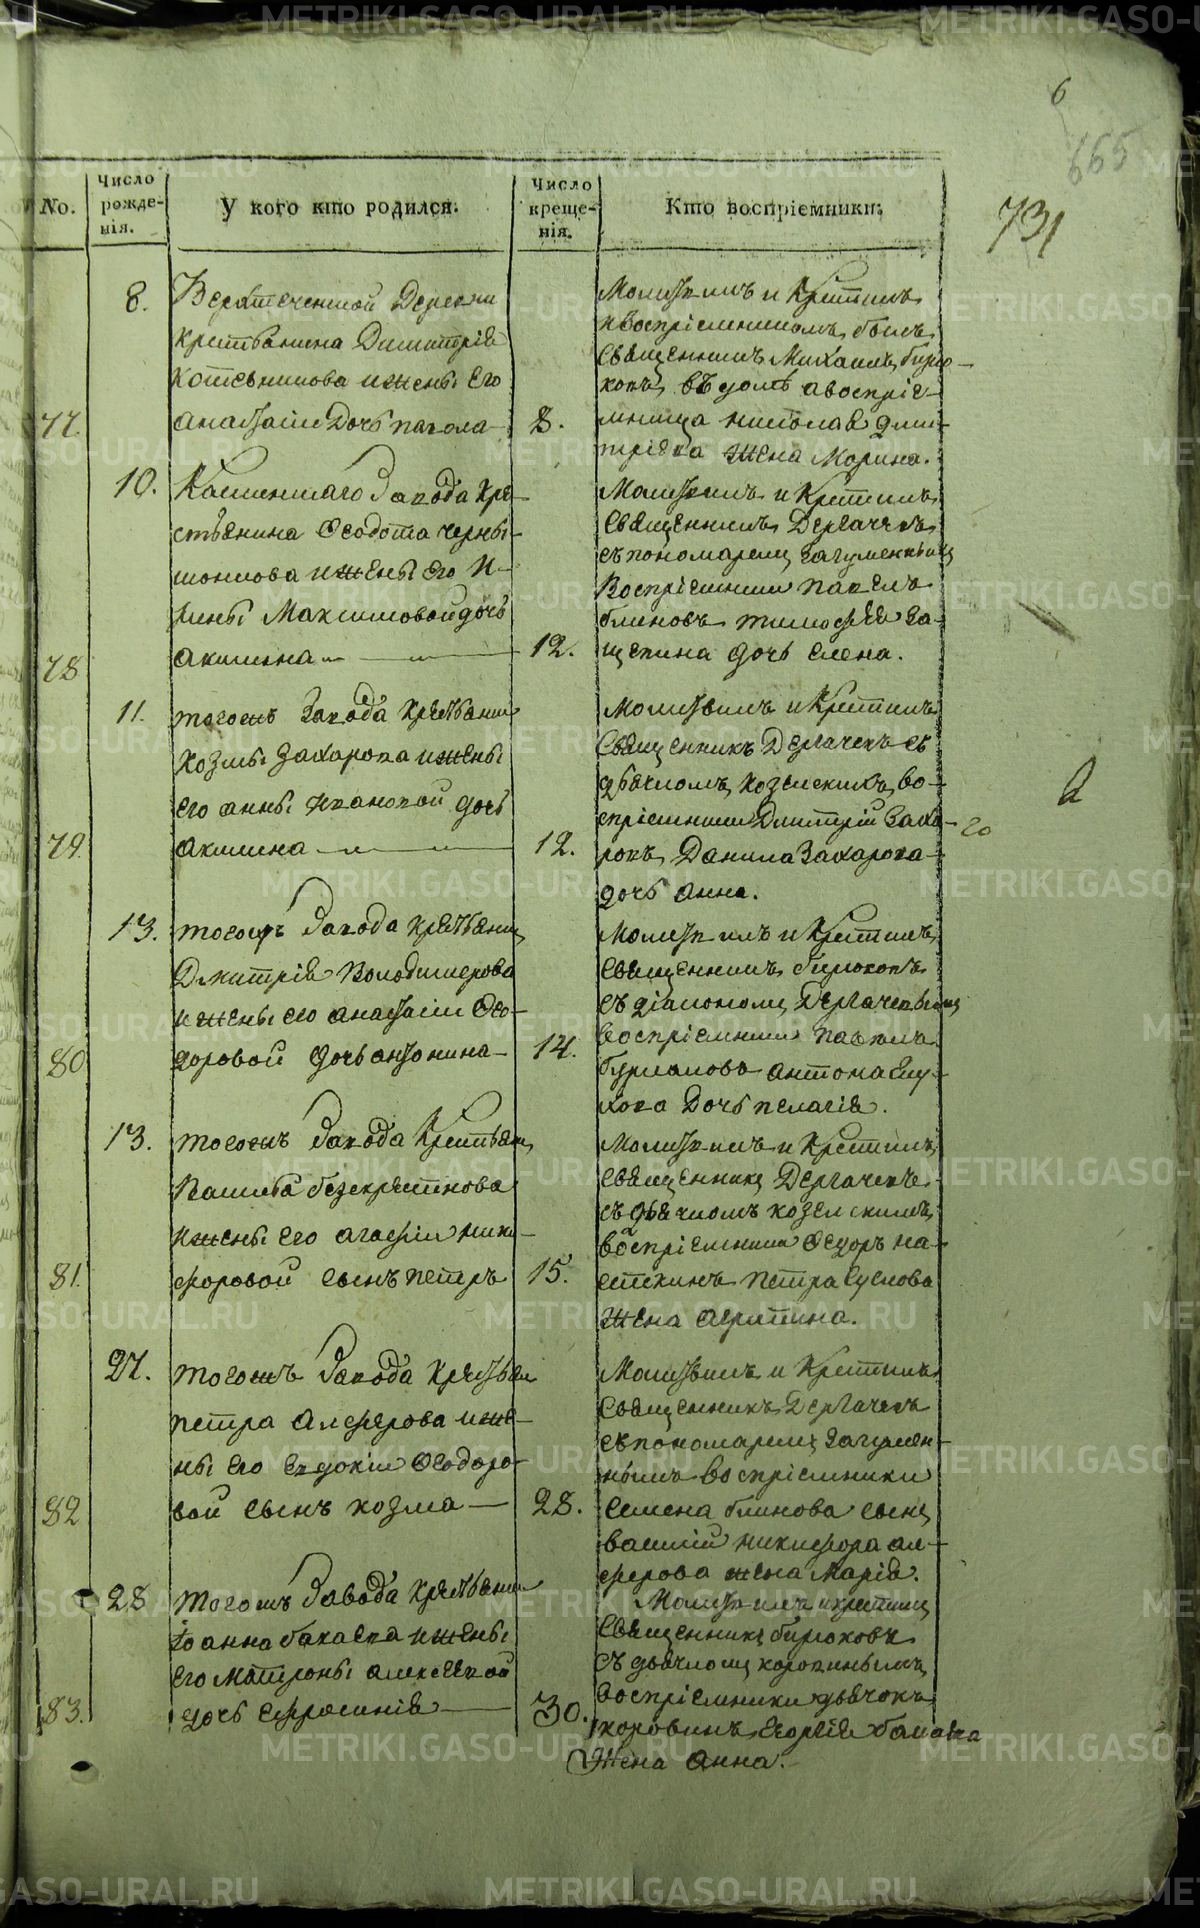 6
665
731
No.
Число рожде- нія.
У кого кто родился.
Число креще- нія.
Кто воспріемники.
77.
8.
Верхтеченской Деревни
крестьянина Димитрія
котельникова и жены Его
анастасіи Дочь павола
8.
Молитвилъ и Крестилъ
и воспріемникомъ былъ
Священникъ Михаилъ бирю-
ковъ, въ домѣ а воспріе-
мница николая дми-
тріева жена Марина.
78
10.
Каменскаго Завода кре-
стьянина Ѳеодота черны-
шонкова и жены Его И-
рины Максимовой дочь
акилина
12.
Молитвилъ и Крестилъ
Священникъ Дергачевъ
съ пономаремъ загуменнымъ
Воспріемники павелъ
блиновъ тимофея За-
щепина дочь елена.
79.
11.
тогожъ Завода крестьянин
козмы Захарова и жены
его анны ивановой дочь
акилина
12.
Молитвилъ и Крестилъ
Священникъ Дергачевъ съ
дьячкомъ козелскимъ, во-
спріемники Дмитрій Заха-
ровъ Данила Захарова
дочь анна.
20
2
80
13.
тогожъ Завода крестьянин
Дмитрія Володимерова
и жены его анастасіи Ѳео-
доровой дочь антонина
14.
Молитвилъ и Крестилъ
Священникъ бирюковъ
съ діакономъ Дергачевымъ
воспріемники павелъ
бурмаковъ антона
дочь пелагія.
81.
13.
тогожъ Завода Крестьян
Василья безкрестнова
и жены его агафіи ники-
форовой сынъ петръ
15.
Молитвилъ и Крестилъ
Священникъ Дергачевъ
съ дьячкомъ козелскимъ,
воспріемники Ѳедоръ на-
стехинъ петра Суслова
жена агрипина.
82
27.
тогожъ Завода крестьян
петра Алферова и же-
ны Его Евдокіи Ѳеодоро-
вой сынъ козма
28.
Молитвилъ и Крестилъ
Священникъ Дергачевъ
съ пономаремъ Загумен-
нымъ воспріемники
семена блинова сынъ
василій никифора ал-
ферова жена Марія.
83.
28
тогожъ Завода крестьянин
Іоанна бакаева и жены
его матроны алексѣевой
дочь ефросинія
30.
Молитвилъ и крестилъ
Священникъ бирюковъ
съ дьячкомъ коровинымъ
воспріемники дьячокъ
коровинъ, Георгія бакаева
Жена анна.
METRIKI.GASO-URAL.RU